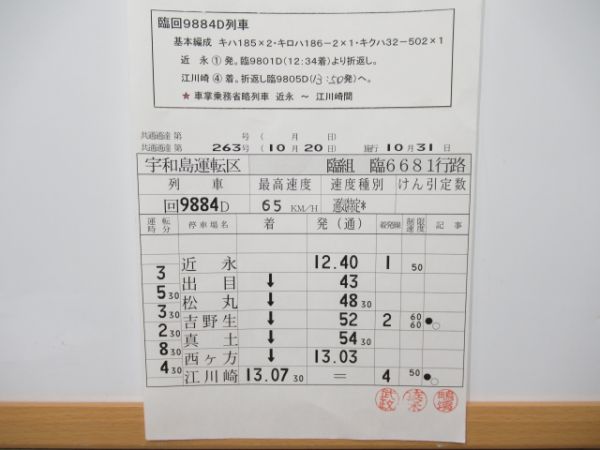 臨回9884D列車
基本編成 キハ185×2・キロハ186−2×1・キクハ32−502×1
近 永 ① 発。臨9801D(12:34着)より折返し。
江川崎 ④ 着。折返し臨9805D(13:50発)へ。
★ 車掌乗務省略列車 近永 〜 江川崎間
共通通達 第 号 ( 月 日)
共通通達 第 263 号 (10月20日) 施行 10月31日
宇和島運転区 臨組 臨6681行路
列車 最高速度 速度種別 けん引定数
回9884D 65 KM/H
運転時分 停車場名 着 発(通) 着発線 制限速度 記事
近永 12.40 1 50
3
出目 ↓ 43
5 30
松丸 ↓ 48 30
3 30
吉野生 ↓ 52 2 60 60 ●○
2 30
真土 ↓ 54 30
8 30
西ヶ方 ↓ 13.03
4 30
江川崎 13.07 30 = 4 50 ●○